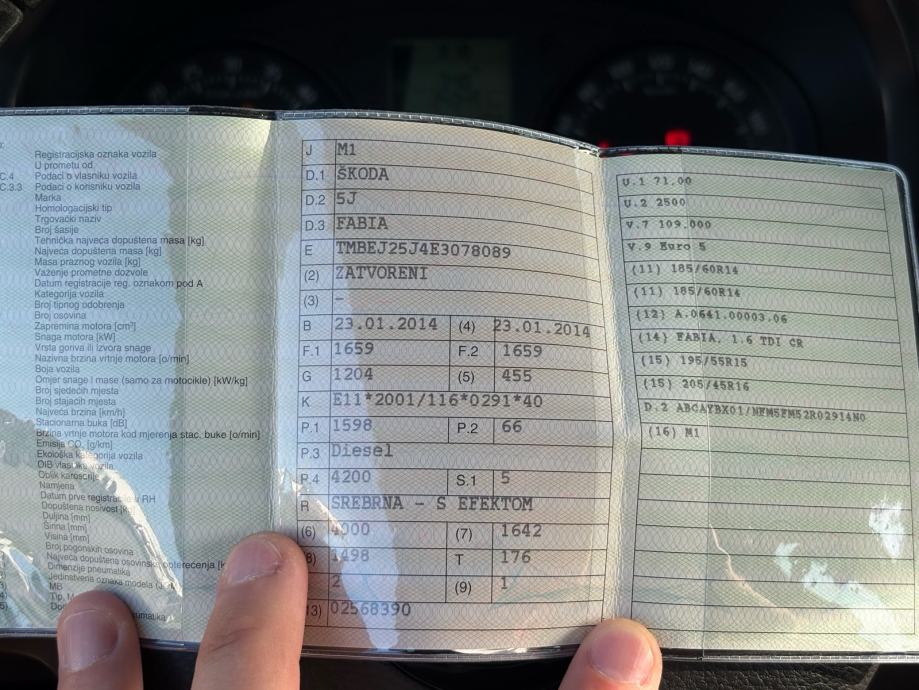 Registracijska oznaka vozila
U prometu od
C.4 Podaci o vlasniku vozila
C.3.3 Podaci o korisniku vozila
Marka
Homologacijski tip
Trgovački naziv
Broj šasije
Tehnička najveća dopuštena masa [kg]
Najveća dopuštena masa [kg]
Masa praznog vozila [kg]
Važenje prometne dozvole
Datum registracije reg. oznakom pod A
Kategorija vozila
Broj tipnog odobrenja
Broj osovina
Zapremina motora [cm³]
Snaga motora [kW]
Vrsta goriva ili izvora snage
Nazivna brzina vrtnje motora [o/min]
Boja vozila
Omjer snage i mase (samo za motocikle) [kW/kg]
Broj sjedećih mjesta
Broj stajaćih mjesta
Najveća brzina [km/h]
Stacionarna buka [dB]
Brzina vrtnje motora kod mjerenja stac. buke [o/min]
Emisija CO₂ [g/km]
Ekološka kategorija vozila
OIB vlasnika vozila
Oblik karoserije
Namjena
Datum prve registracije u RH
Dopuštena nosivost [kg]
Duljina [mm]
Širina [mm]
Visina [mm]
Broj pogonskih osovina
Najveća dopuštena osovinsko opterećenja
Dimenzije pneumatika
Jedinstvena oznaka modela
MB
J M1
D.1 ŠKODA
D.2 5J
D.3 FABIA
E TMBEJ25J4E3078089
(2) ZATVORENI
(3) –
B 23.01.2014 (4) 23.01.2014
F.1 1659 F.2 1659
G 1204 (5) 455
K E11*2001/116*0291*40
P.1 1598 P.2 66
P.3 Diesel
P.4 4200 S.1 5
R SREBRNA - S EFEKTOM
(6) 4000 (7) 1642
1498 T 176
2 (9) 1
02568390
U.1 71,00
U.2 2500
V.7 109.000
V.9 Euro 5
(11) 185/60R14
(11) 185/60R14
(12) A.0641.00003.06
(14) FABIA, 1.6 TDI CR
(15) 195/55R15
(15) 205/45R16
D.2 ABCAYBX01/NFM5FM52R02914N0
(16) M1